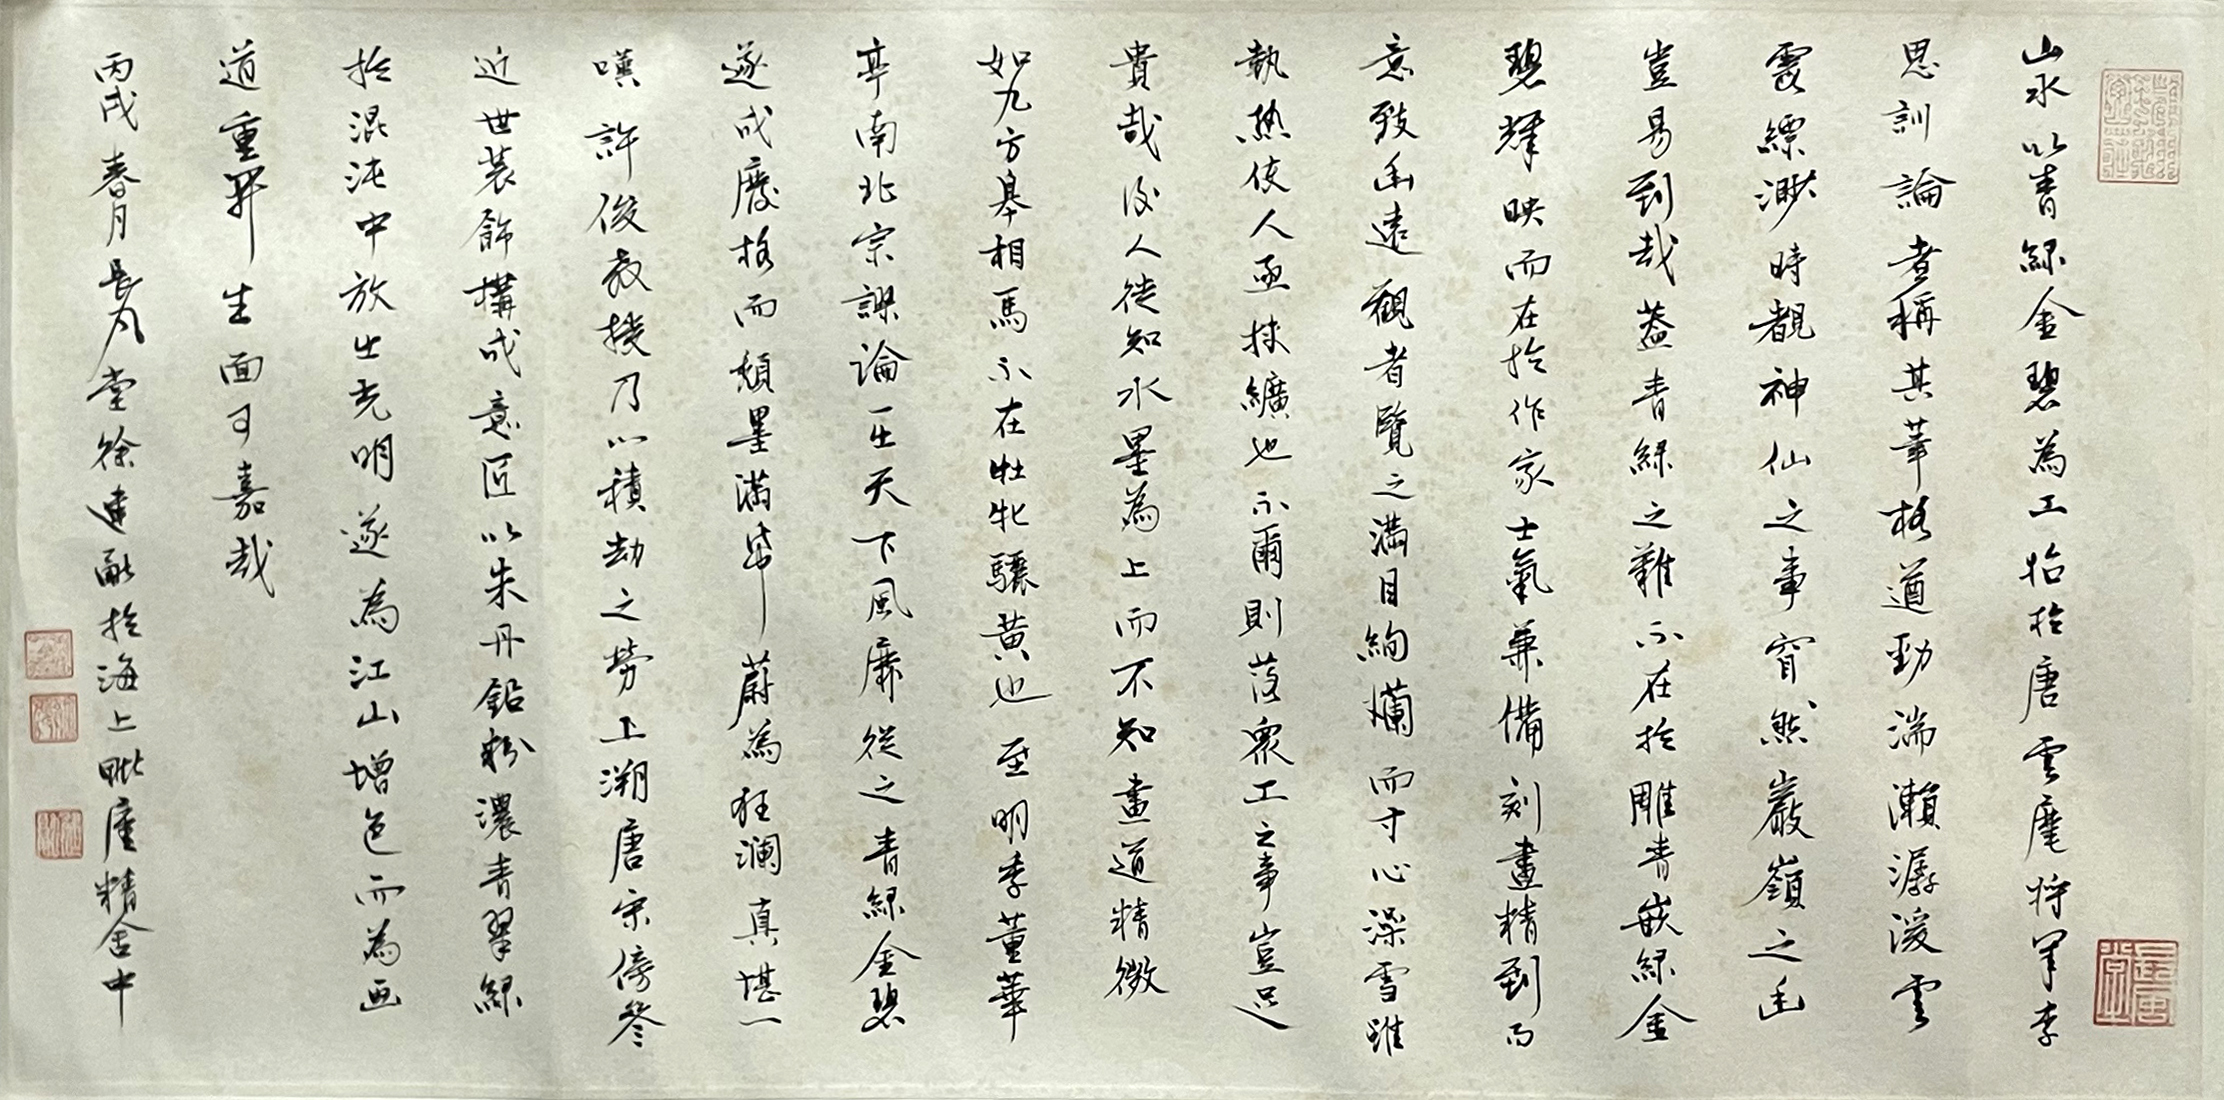 山水以青綠金碧為工昉於唐雲麾將軍李
思訓論者稱其筆格遒勁湍瀨潺湲雲
霞縹渺時覩神仙之事窅然巖嶺之幽
豈易到哉蓋青綠之難不在於雕青嵌綠金
碧輝映而在於作家士氣兼備刻畫精到而
意致幽遠觀者覽之滿目絢爛而寸心澡雪雖
執熱使人亟挾纊也不爾則落眾工之事豈足
貴哉後人徒知水墨為上而不知畫道精微
如九方皋相馬不在牡牝驪黃也至明季董華
亭南北宗謬論一出天下風靡從之青綠金碧
遂成廢格而頹墨滿紙蔚為狂瀾真堪一
嘆許俊教授乃以積劫之勞上溯唐宋傍參
近世裝飾構成意匠以朱丹鉛粉濃青翠綠
於混沌中放出光明遂為江山增色而為画
道重開生面可嘉哉
丙戌春月長風堂徐建融於海上毗廬精舍中